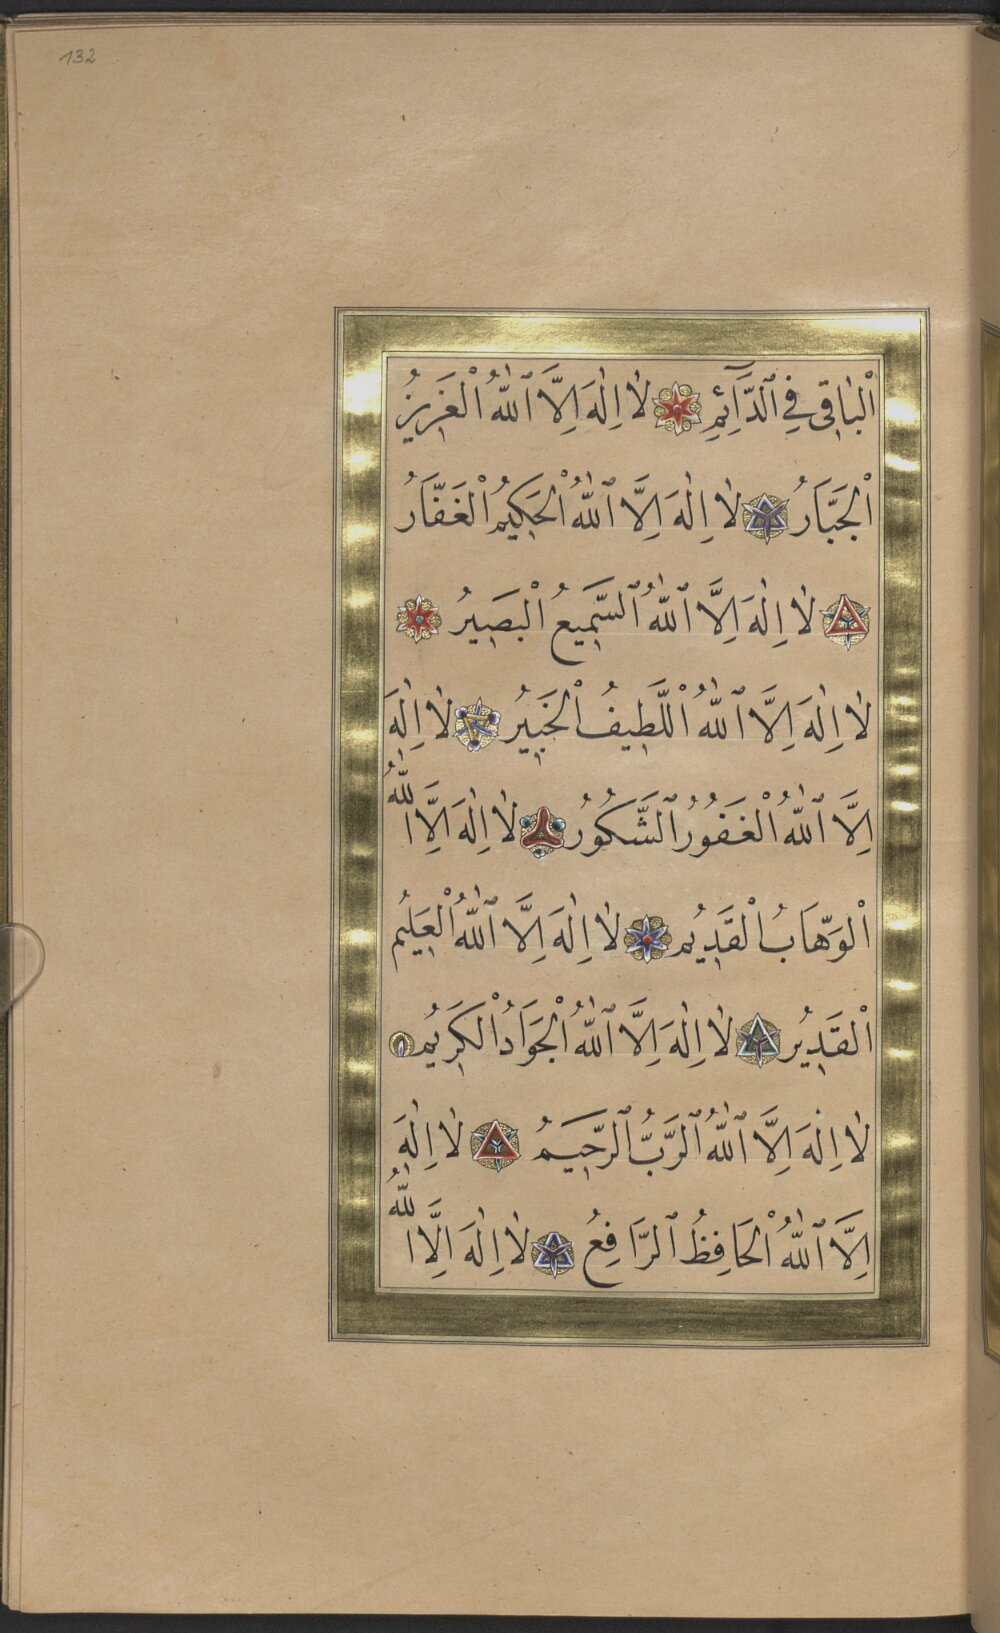 132
اْلبَاقِى فِى ٱلدَّآئِمِ لاٰ اِلٰهَ اِلاَّ ٱللّٰهُ اْلعَزِيزُ
اْلجَبَّارُ لاٰ اِلٰهَ اِلاَّ ٱللّٰهُ اْلحَكِيمُ اْلغَفَّارُ
لاٰ اِلٰهَ اِلاَّ ٱللّٰهُ ٱلسَّمِيعُ اْلبَصِيرُ
لاٰ اِلٰهَ اِلاَّ ٱللّٰهُ اْللَّطِيفُ اْلخَبِيرُ لاٰ اِلٰهَ
اِلاَّ ٱللّٰهُ اْلغَفُورُ ٱلشَّكُورُ لاٰ اِلٰهَ اِلاَّ اللّٰهُ
اْلوَهَّابُ اْلقَدِيمُ لاٰ اِلٰهَ اِلاَّ ٱللّٰهُ اْلعَلِيمُ
اْلقَدِيرُ لاٰ اِلٰهَ اِلاَّ ٱللّٰهُ اْلجَوَادُ اْلكَرِيمُ
لاٰ اِلٰهَ اِلاَّ ٱللّٰهُ ٱلرَّبُّ ٱلرَّحِيمُ لاٰ اِلٰهَ
اِلاَّ ٱللّٰهُ اْلحَافِظُ ٱلرَّافِعُ لاٰ اِلٰهَ اِلاَّ اللّٰهُ